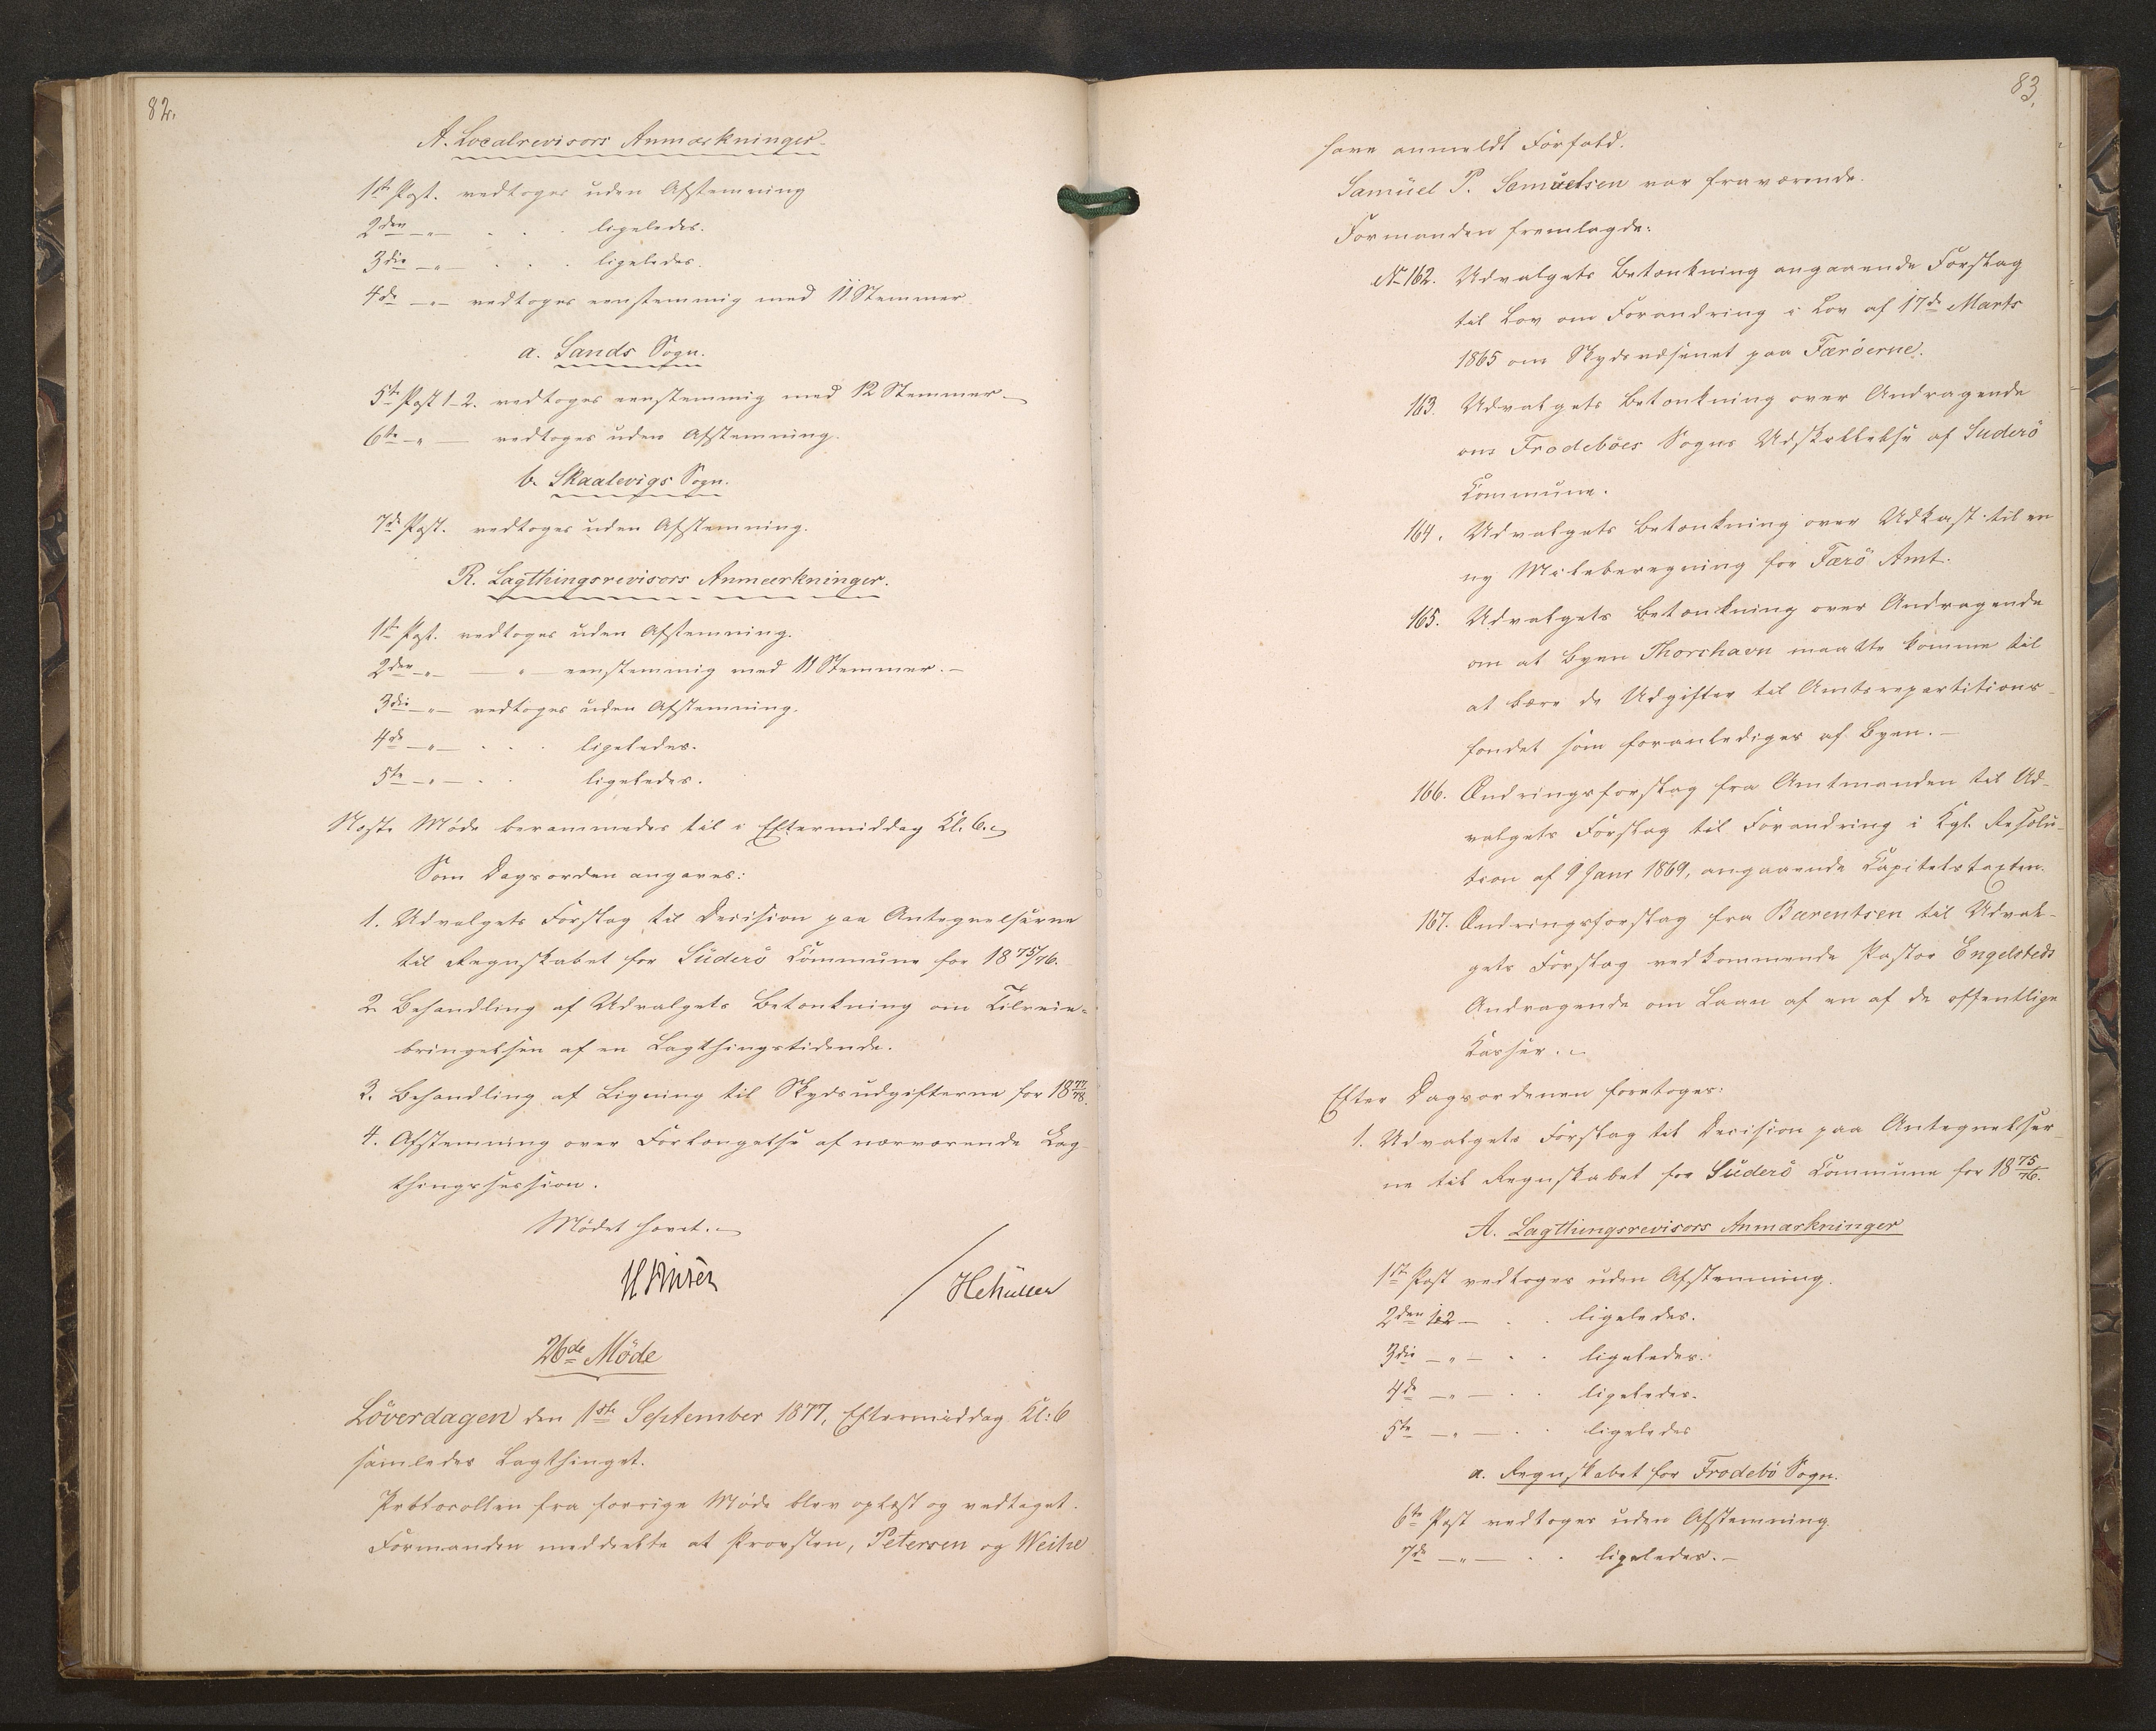 82.
A. Localrevisors Anmærkninger
1ste Post. vedtoges uden Afstemning
2den —„— . . . ligeledes.
3die —„— . . . ligeledes.
4de —„— vedtoges eenstemmig med 11 Stemmer.
a. Sands Sogn.
5te Post 1-2. vedtoges eenstemmig med 12 Stemmer.—
6te —„— vedtoges uden Afstemning.
b. Skaalevigs Sogn.
7de Post. vedtoges uden Afstemning.
R. Lagthingsrevisors Anmærkninger.
1ste Post. vedtoges uden Afstemning.
2den —„— —„— eenstemmig med 11 Stemmer.—
3die —„— vedtoges uden Afstemning.
4de —„— . . . ligeledes.
5te —„— . . ligeledes.
Næste Møde berammedes til i Eftermiddag Kl. 6.
Som Dagsorden angaves:
1. Udvalgets Forslag til Decision paa Antegnelserne
til Regnskabet for Süderö Commune for 1875/76.
2. Behandling af Udvalgets Betænkning om Tilveie-
bringelsen af en Lagthingstidende.
3. Behandling af Ligning til Skydsudgifterne for 1877/78.
4. Afstemning over Forlængelse af nærværende Lag-
thingssession.
Mødet hævet.—
/ HMüller
26de Möde
Löverdagen den 1ste September 1877, Eftermiddag Kl: 6
samledes Lagthinget.
Protocollen fra forrige Møde blev oplæst og vedtaget.
Formanden meddeelte at Provsten, Petersen og Weihe
83.
have anmeldt Forfald.
Samüel P. Samüelsen var fraværende.
Formanden fremlagde:
No 162. Udvalgets Betænkning angaaende Forslag
til Lov om Forandring i Lov af 17de Marts
1865 om Skydsvæsenet paa Færöerne.
163. Udvalgets Betænkning over Andragende
om Frodeböes Sogns Udskillelse af Suderö
Commune.
164. Udvalgets Betænkning over Udkast til en
ny Mileberegning for Færö Amt.
165. Udvalgets Betænkning over Andragende
om at Byen Thorshavn maatte komme til
at bære de Udgifter til Amtsrepartitions-
fondet som foranlediges af Byen.—
166. Ændringsforslag fra Amtmanden til Ud-
valgets Forslag til Forandring i Kgl. Resolu-
tion af 9 Janr 1869, angaaende Capitelstaxten.
167. Ændringsforslag fra Bærentsen til Udval-
gets Forslag vedkommende Pastor Engelsteds
Andragende om Laan af en af de offentlige
Kasser.
Efter Dagsordenen foretoges:
1. Udvalgets Forslag til Decision paa Antegnelser-
ne til Regnskabet for Süderö Commune for 1875/76.
A. Lagthingsrevisors Anmærkninger
1ste Post vedtoges uden Afstemning.
2den 1-2 — . . ligeledes.
3die —„— . . ligeledes.
4de —„— . . ligeledes.
5te —„— . . ligeledes
a. Regnskabet for Frodebö Sogn.
6te Post vedtoges uden Afstemning.
7de —„— . . ligeledes.—